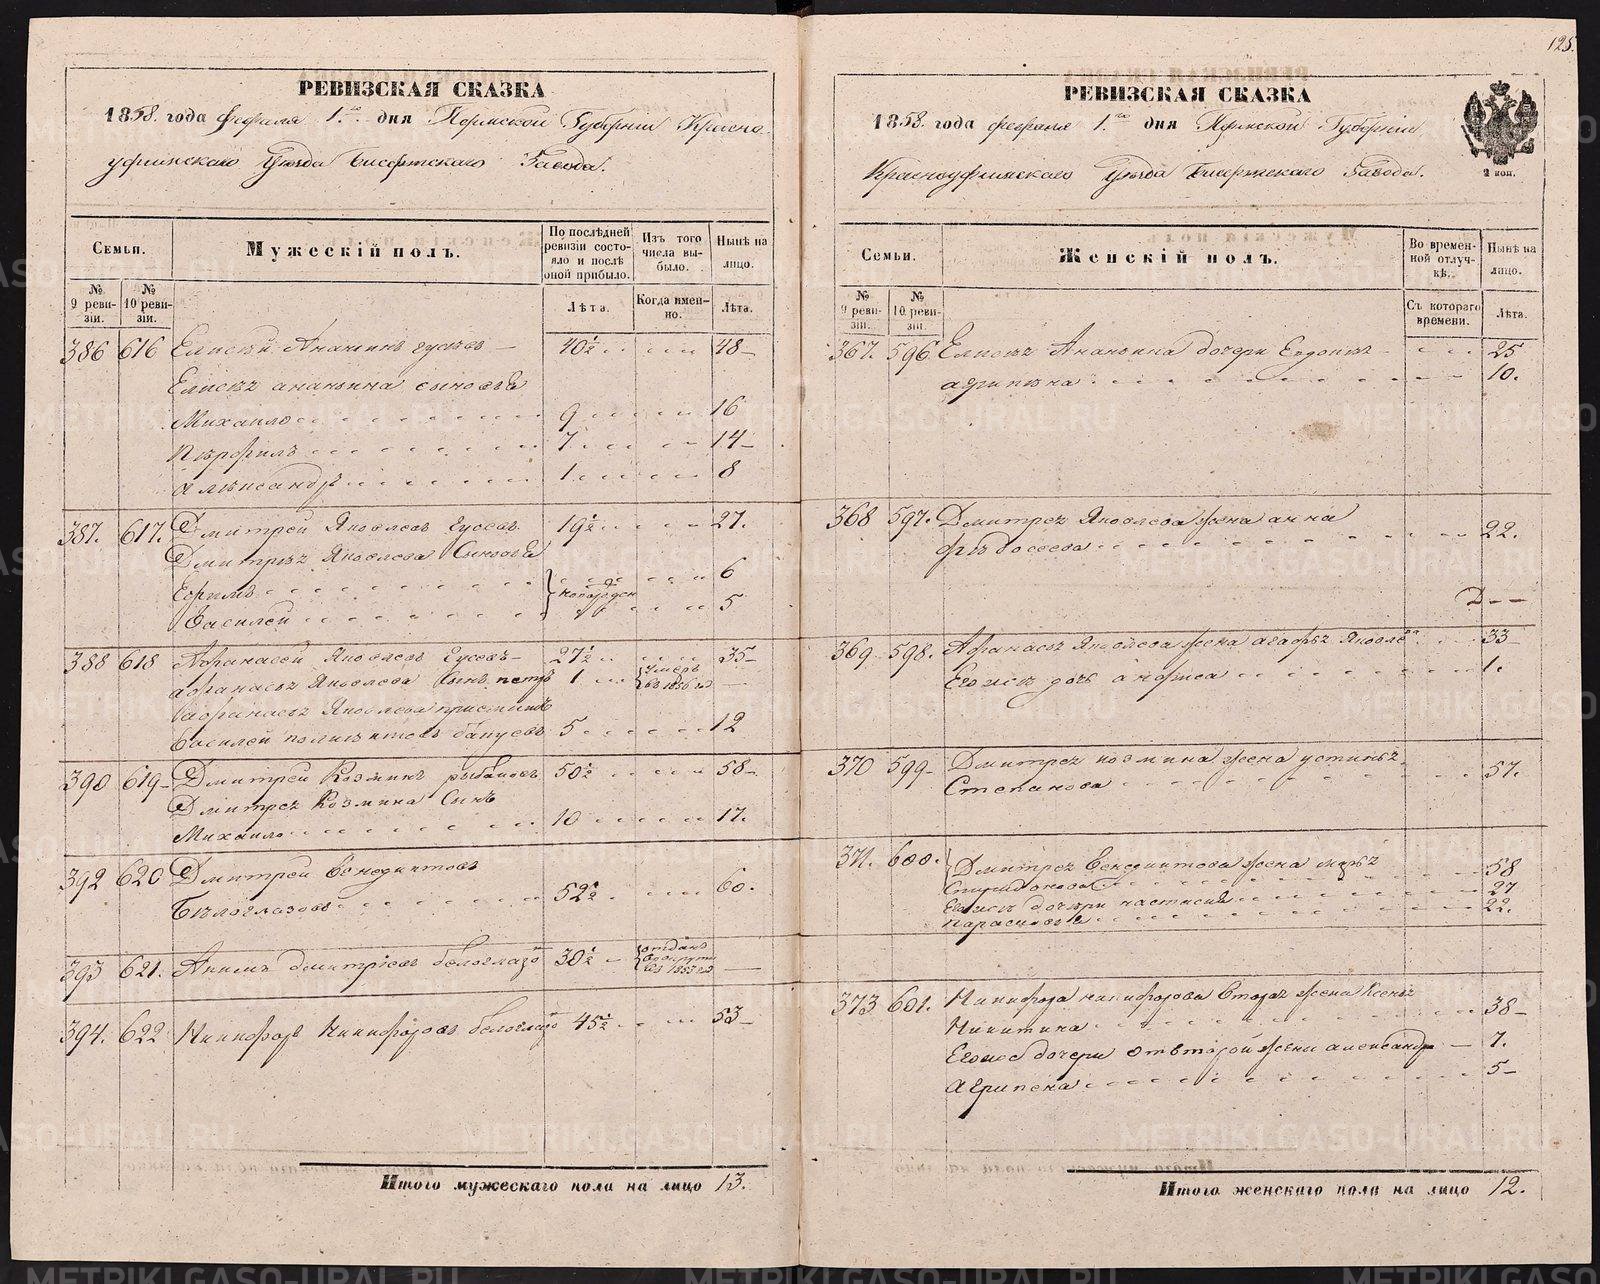 125.
РЕВИЗСКАЯ СКАЗКА
1858. года февраля 1.го дня Пермской Губернии Красно
уфимскаго Уезда Бисертскаго Завода.
Семьи.
№ 9 ревизіи.
№ 10 ревизіи.
Мужескій полъ.
По послѣдней ревизіи состояло и послѣ оной прибыло.
Лѣта.
Изъ того числа выбыло.
Когда именно.
Нынѣ на лицо.
Лѣта.
386 616 Елисей Ананьинъ Гусевъ 40½ 48
Елисея Ананьина сыновья
Михайло 9 16
Перфилъ 7 14
Александръ 1 8
387. 617. Дмитрей Яковлевъ Гусевъ 19½ 27.
Дмитрея Яковлева Сыновья
Ефимъ новорожден 6
Василей 5
388 618 Афанасей Яковлевъ Гусевъ 27½ 35
Афанасья Яковлева Сынъ петръ 1 умеръ въ 1856 г.
Афанасья Яковлева
Василей 5 12
390 619 Дмитрей Козминъ 50½ 58
Дмитрея Козмина Сынъ
Михайло 10 17.
392 620 Дмитрей Венедиктовъ
Бѣлоглазовъ 52½ 60.
393 621. Акимъ Дмитріевъ белоглазо 30½ отданъ в рекруты въ 1853 г.
394. 622 Никифоръ Никифоровъ белоглазо 45½ 53
Итого мужескаго пола на лицо 13.
РЕВИЗСКАЯ СКАЗКА
1858. года февраля 1.го дня Пермской Губерніи
Красноуфимскаго Уезда Бисертскаго Завода.
2 коп.
Семьи.
№ 9 ревизіи.
№ 10 ревизіи.
Женскій полъ.
Во временной отлучкѣ.
Съ котораго времени.
Нынѣ на лицо.
Лѣта.
367. 596. Елисея Ананьина дочери Евдокея 25
агрипена 10.
368 597. Дмитрея Яковлева жена анна
федосеева 22.
369 598. Афанасья Яковлева жена агафья Яковле 33
Его дочь анфиса 1.
370 599 Дмитрея козмина жена устинья
Степанова 57.
371. 600. Дмитрея Венедиктова жена марья
Спиридонова 58
дочери настасия 27
парасковья 22.
373 601. Никифора никифорова Вторая жена Ксенья
Никитина 38
Его дочери отвторой жены александр 7.
агрипена 5
Итого женскаго пола на лицо 12.
METRIKI.GASO-URAL.RU